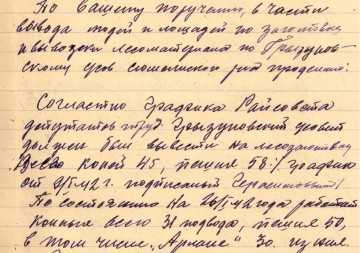 По Вашему поручению, в части
вывода людей и лошадей по заготовке
и вывозки лесоматериала по Грызунов-
скому сель
Согласно Графика Райсовета
депутатов труд. Грызуновский
должен был вывести на лесозаготовку
Всего коней 45, пеших 58. / график
от 9/I-42 г. подписанный Герасимовым /
По состоянию на 26/I-42 года работает
конных всего 31 подвода, пеших 50,
в том числе „Ариане“ 30. из них